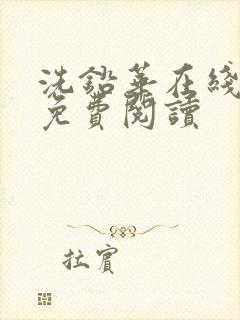 洗鉛華在綫
免費閱讀
拉賓